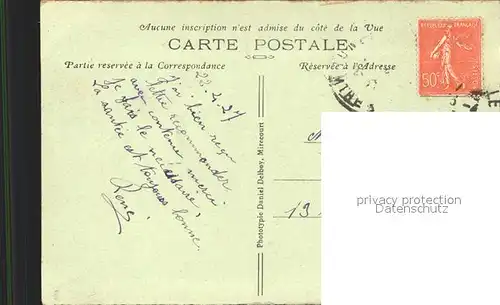 Aucune inscription n'est admise du côté de la Vue
CARTE POSTALE
Partie reservée à la Correspondance
Réservée à l'Adresse
22.4.27
J'ai bien reçu
lettre recommander
avec contenu, merci
Je fais le nécessaire
La santée est toujours bonne.
René
Phototypie Daniel Delboy, Mirecourt
50
MIRE
13
privacy protection
Datenschutz